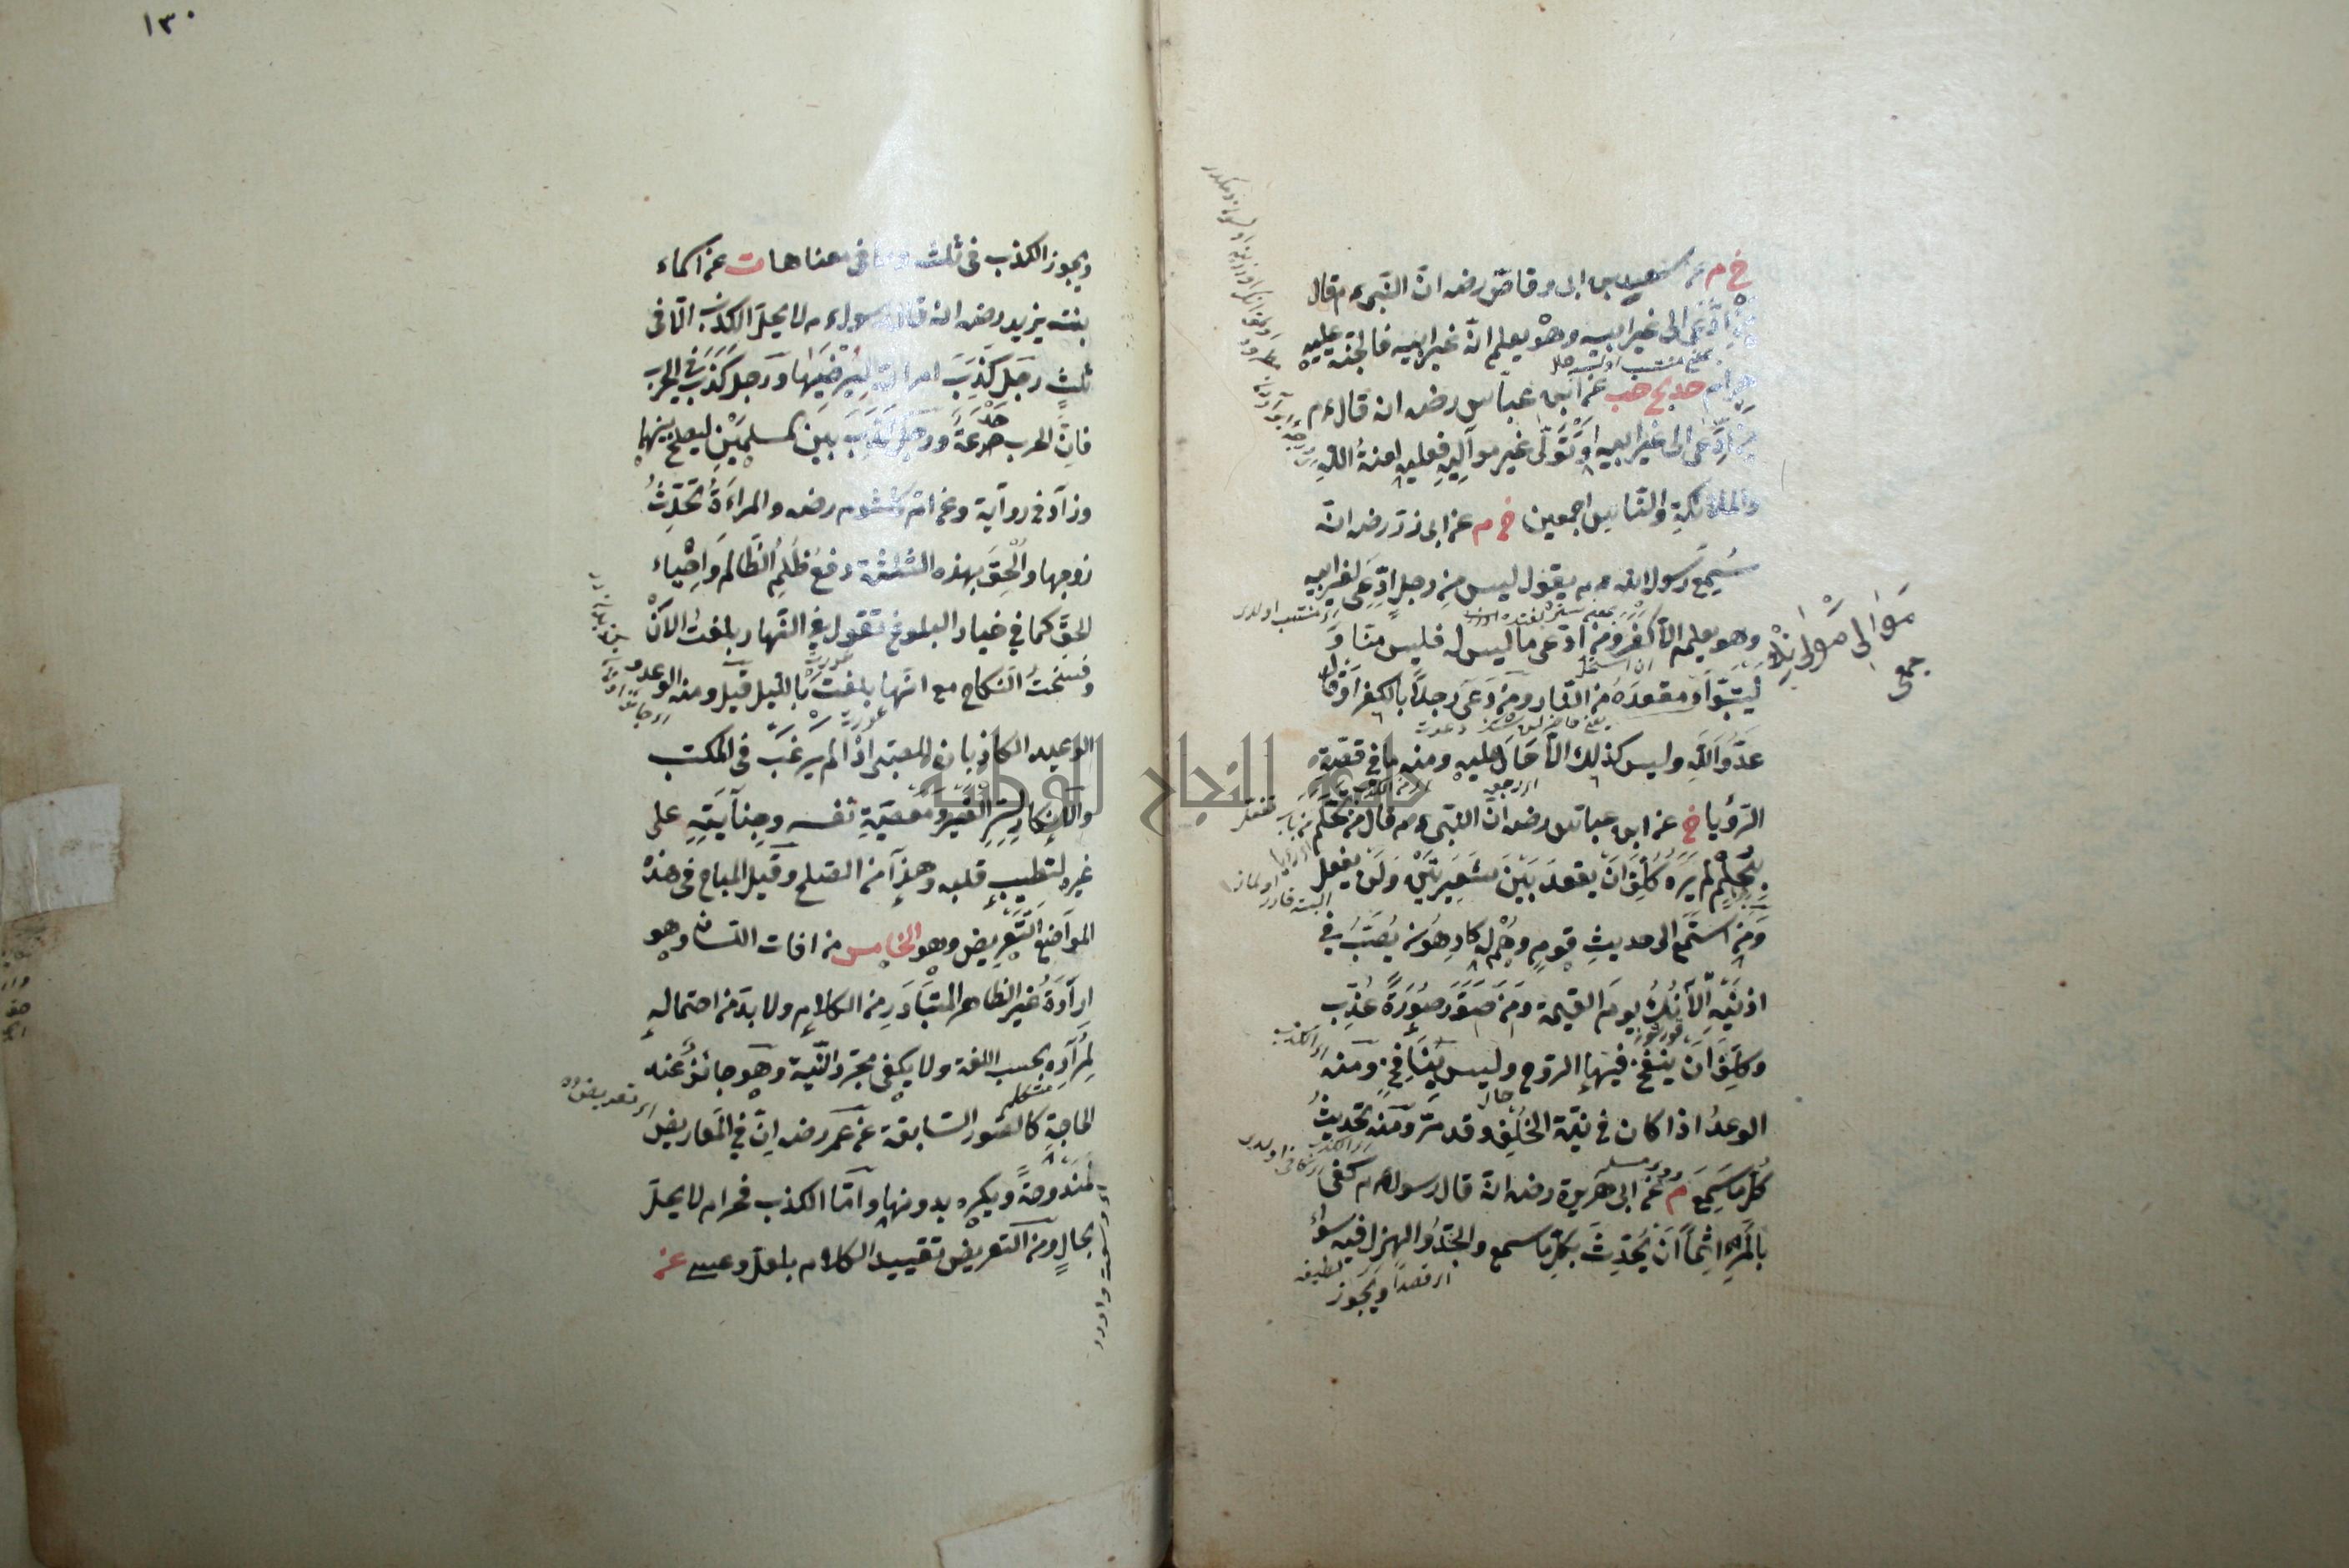 خ م عن سعيد بن ابى وقاص رض ان النبى ءم قال
من ادعى الى غير ابيه وهو يعلم انه غير ابيه فالجنة عليه
حرام حد مج حب عن ابن عباس رض انه قال ءم
من ادعى الى غير ابيه او تولى غير مواليه فعليه لعنة الله
والملائكة والناس اجمعين خ م عن ابى ذر رض انه
سمع رسول الله ءم يقول ليس من رجل ادعى لغير ابيه
وهو يعلمه الا كفر ومن ادعى ما ليس له فليس منا و
ليتبوأ مقعده من النار ومن دعى رجلا بالكفر او قال
عدو الله وليس كذلك الا حار عليه ومنه ما فى قصة
الرؤيا خ عن ابن عباس رض ان النبى ءم قال من تحلم
بحلم لم يره كلف ان يعقد بين شعيرتين ولن يفعل
ومن استمع الى حديث قوم وهم له كارهون يصب فى
اذنيه الآنك يوم القيمة ومن صور صورة عذب
وكلف ان ينفخ فيها الروح وليس بنافخ ومنه
الوعد اذا كان فى نية الخلف وقد مر ومنه تحديث
كل ما سمع م عن ابى هريرة رض انه قال رسول الله ءم كفى
بالمرء اثما ان يحدث بكل ما سمع والجد والهزل فيه سواء
ويجوز
موالى مولى
جمعى
١٣٠
ويجوز الكذب فى ثلث وما فى معناها ت عن اسماء
بنت يزيد رض انه قال رسول ءم لا يحل الكذب الا فى
ثلث رجل كذب امرأته ليرضيها ورجل كذب فى الحرب
فان الحرب خدعة ورجل كذب بين المسلمين ليصلح بينهما
وزاد فى رواية وعن ام كلثوم رض والمرأة تحدث
زوجها والحق بهذه الثلثة دفع ظلم الظالم واحياء
الحق كما فى خيار البلوغ تقول فى النهار بلغت الآن
وفسخت النكاح مع انها بلغت بالليل قيل ومنه الوعد و
الوعيد الكاذبان للصبى اذا لم يرغب فى المكتب
والانكار لسر الغير ومعصية نفسه وجنايته على
غيره لتطييب قلبه وهذا من الصلح وقيل المباح فى هذه
المواضع التعريض وهو الخامس من افات اللسان وهو
ارادة غير الظاهر المتبادر من الكلام ولا بد من احتماله
لمراده بحسب اللغة ولا يكفى مجرد النية وهو جائز عند
الحاجة كالصور السابقة عن عمر رض ان فى المعاريض
لمندوحة ويكره بدونها واما الكذب فحرام لا يحل
بحال ومن التعريض تقييد الكلام بلعل وعسى عن